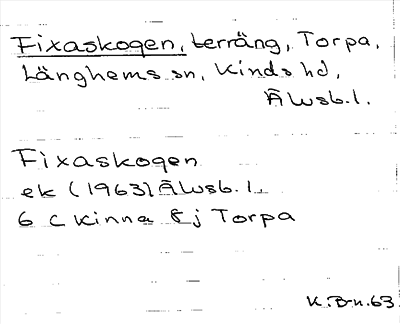 Fixaskogen, terräng, Torpa,
Länghems sn, Kinds hd,
Älvsb. l.
Fixaskogen
ek (1963) Älvsb. l.
6 C Kinna 8 j Torpa
K. B-n. 63